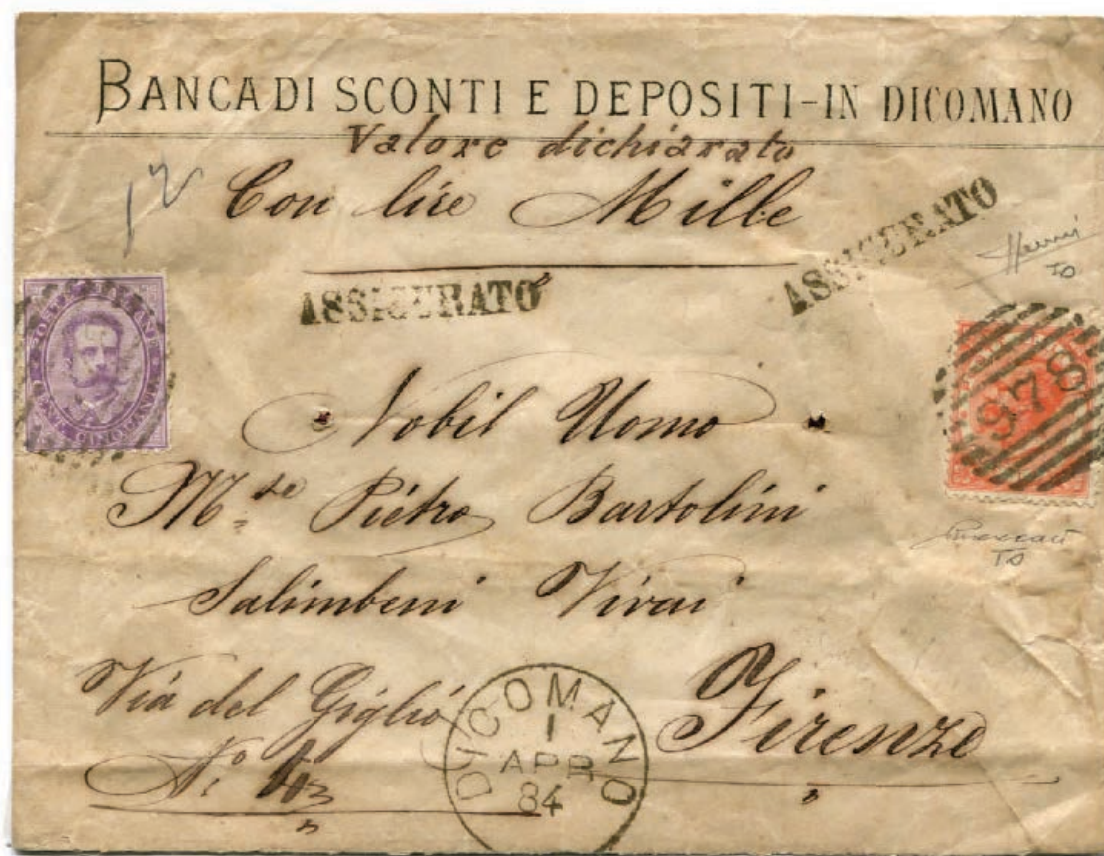 BANCA DI SCONTI E DEPOSITI-IN DICOMANO
Valore dichiarato
12
Con lire Mille
ASSICURATO
ASSICURATO
TO
978
CINQUANTA
Nobil Uomo
M.se Pietro Bartolini
TO
Salimbeni Vivai
Via del Giglio
Firenze
N.o
DICOMANO
1
APR
84